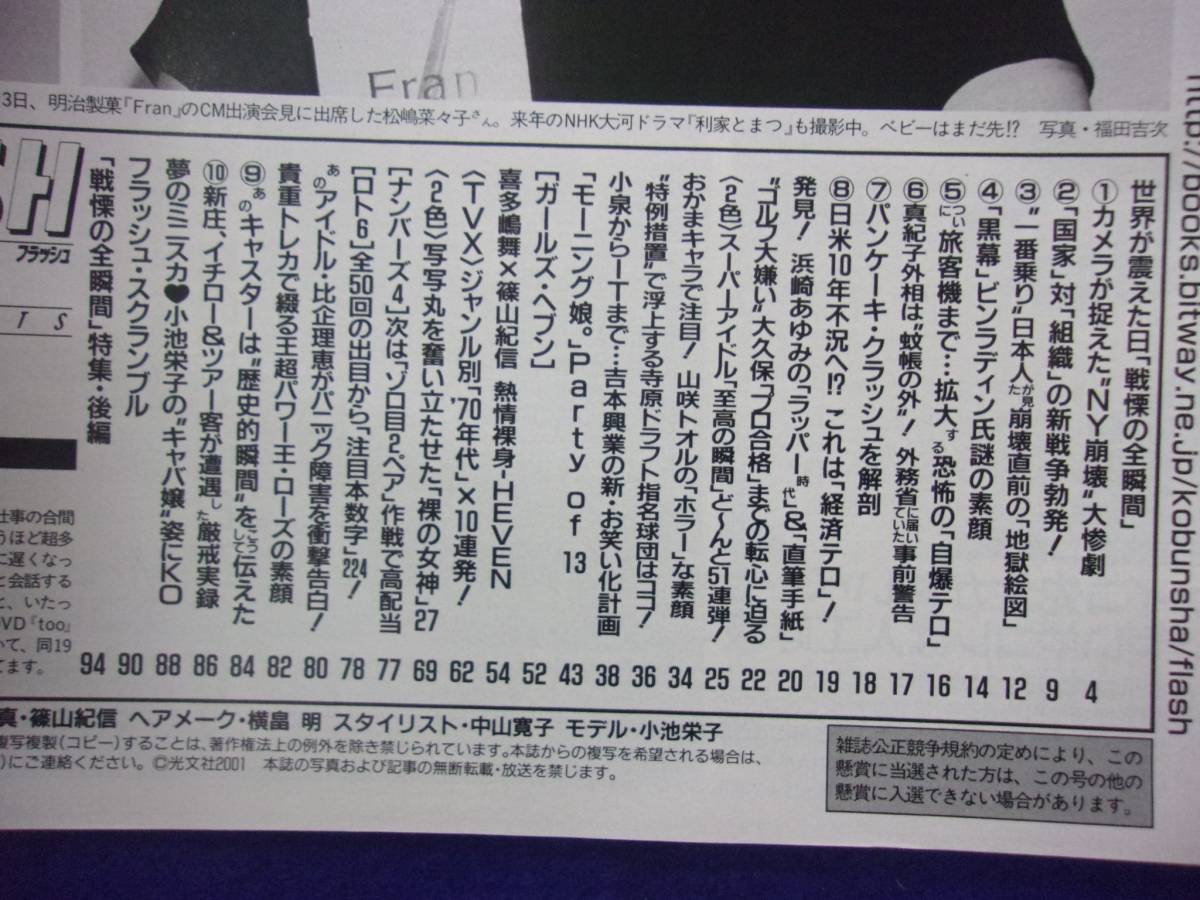 Fran
3日、明治製菓『Fran』のCM出演会見に出席した松嶋菜々子さん。来年のNHK大河ドラマ『利家とまつ』も撮影中。ベビーはまだ先!? 写真・福田吉次
http://books.bitway.ne.jp/kobunsha/flash
SH
フラッシュ
T S
世界が震えた日「戦慄の全瞬間」
①カメラが捉えた“NY崩壊”大惨劇 4
②「国家」対「組織」の新戦争勃発! 9
③“一番乗り”日本人が見た崩壊直前の「地獄絵図」 12
④「黒幕」ビンラディン氏謎の素顔 14
⑤ついに旅客機まで…拡大する恐怖の「自爆テロ」 16
⑥真紀子外相は“蚊帳の外”! 外務省に届いていた事前警告 17
⑦パンケーキ・クラッシュを解剖 18
⑧日米10年不況へ!? これは「経済テロ」! 19
発見! 浜崎あゆみの「ラッパー時代」&「直筆手紙」 20
“ゴルフ大嫌い”大久保「プロ合格」までの転心に迫る 22
〈2色〉スーパーアイドル「至高の瞬間」ど〜んと51連弾! 25
おかまキャラで注目! 山咲トオルの「ホラー」な素顔 34
“特例措置”で浮上する寺原ドラフト指名球団はココ! 36
小泉からITまで…吉本興業の新・お笑い化計画 38
「モーニング娘。」Party of 13 43
[ガールズ・ヘブン] 52
喜多嶋舞×篠山紀信 熱情裸身・HEVEN 54
〈TVX〉ジャンル別「'70年代」×10連発! 62
〈2色〉写写丸を奮い立たせた「裸の女神」27 69
[ナンバーズ4]次は「ゾロ目2ペア」作戦で高配当 77
[ロト6]全50回の出目から「注目本数字」224! 78
あのアイドル・比企理恵がパニック障害を衝撃告白! 80
貴重トレカで綴る王超パワー王・ローズの素顔 82
⑨あのキャスターは“歴史的瞬間”をこうして伝えた 84
⑩新庄、イチロー&ツアー客が遭遇した厳戒実録 86
夢のミニスカ♥小池栄子の“キャバ嬢”姿にKO 88
フラッシュ・スクランブル 90
「戦慄の全瞬間」特集・後編 94
仕事の合間
うほど超多
に遅くなっ
と会話する
と、いたっ
DVD『too』
いて、同19
てます。
真・篠山紀信 ヘアメーク・横畠 明 スタイリスト・中山寛子 モデル・小池栄子
複写複製(コピー)することは、著作権法上の例外を除き禁じられています。本誌からの複写を希望される場合は、
)にご連絡ください。©光文社2001 本誌の写真および記事の無断転載・放送を禁じます。
雑誌公正競争規約の定めにより、この
懸賞に当選された方は、この号の他の
懸賞に入選できない場合があります。